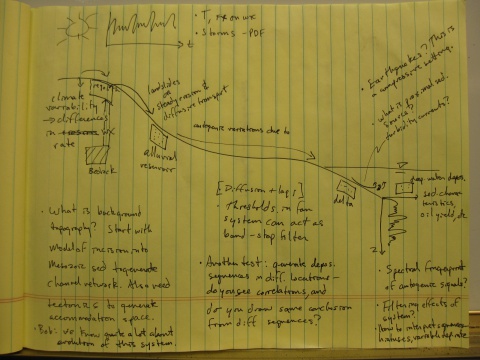 • T, on wx
• Storms - PDF
t
regolith
climate
variability
→ differences
in wx
rate
Bedrock
landslides
or
steady erosion &
diffusive transport
alluvial
reservoir
autogenic variations due to
• Earthquakes? This is
a compressive setting.
• what is proximal sed.
source to
turbidity currents?
delta
deep-water depos.
sed. charac-
teristics,
oil yield, etc
z
[Diffusion + lag;]
• Thresholds in fan
system can act as
band-stop filter
• Another test: generate depos.
sequences in diff. locations -
do you see correlations, and
do you draw same conclusion
from diff sequences?
• What is background
topography? Start with
model of incision into
sed to generate
channel network. Also need
tectonics to generate
accommodation space.
• Bob: we know quite a lot about
evolution of this system.
• Spectral fingerprint
of autogenic signals?
• Filtering effects of
system?
• how to interpret sequences
variable dep. rate